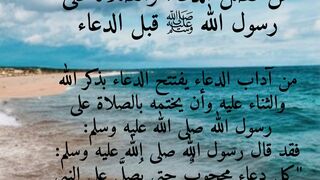 رسول الله ﷺ قبل الدعاء
من آداب الدعاء يفتتح الدعاء بذكر الله
والثناء عليه وأن يختمه بالصلاة على
رسول الله صلى الله عليه وسلم:
فقد قال رسول الله صلى الله عليه وسلم:
"كل دعاء محجوب حتى يصلى على النبي